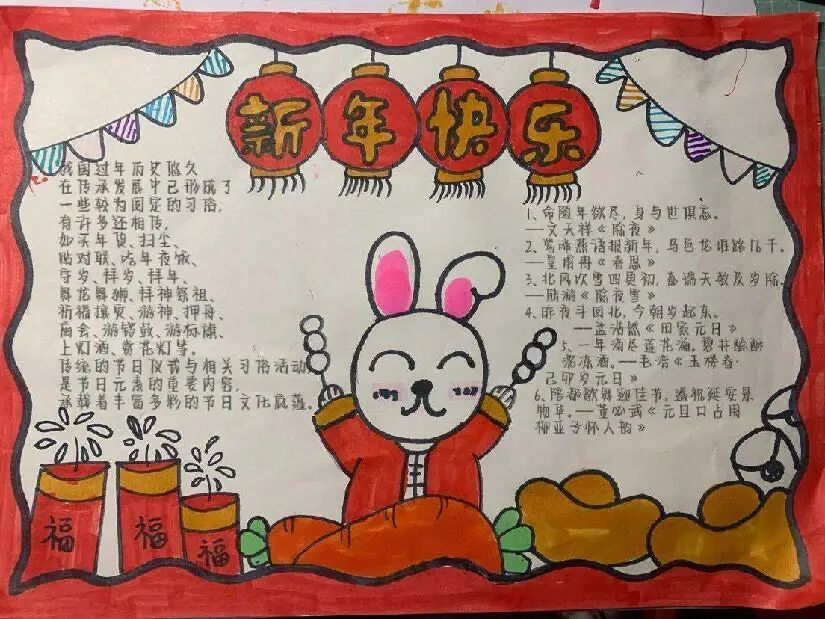 新年快乐
我国过年历史悠久
在传承发展中已形成了
一些较为固定的习俗,
有许多还相传,
如买年货、扫尘、
贴对联、吃年夜饭、
守岁、拜岁、拜年、
舞龙舞狮、拜神祭祖、
祈福攘灾、游神、押舟、
庙会、游锣鼓、游标旗、
上灯酒、赏花灯等。
传统的节日仪式与相关习俗活动,
是节日元素的重要内容,
承载着丰富多彩的节日文化底蕴。
1、命随年欲尽,身与世俱忘。
—文天祥《除夜》
2、莺啼燕语报新年,马邑龙堆路几千。
—皇甫冉《春思》
3、北风吹雪四更初,嘉瑞天教及岁除
—陆游《除夜雪》
4、昨夜斗回北,今朝岁起东。
—孟浩然《田家元日》
5、一年滴尽莲花漏。碧井酴酥
沉冻酒。—毛滂《玉楼春·
己卯岁元日》
6、陪都歌舞迎佳节,遥祝延安景
物华。—董必武《元旦口占用
柳亚子怀人韵》
福
福
福